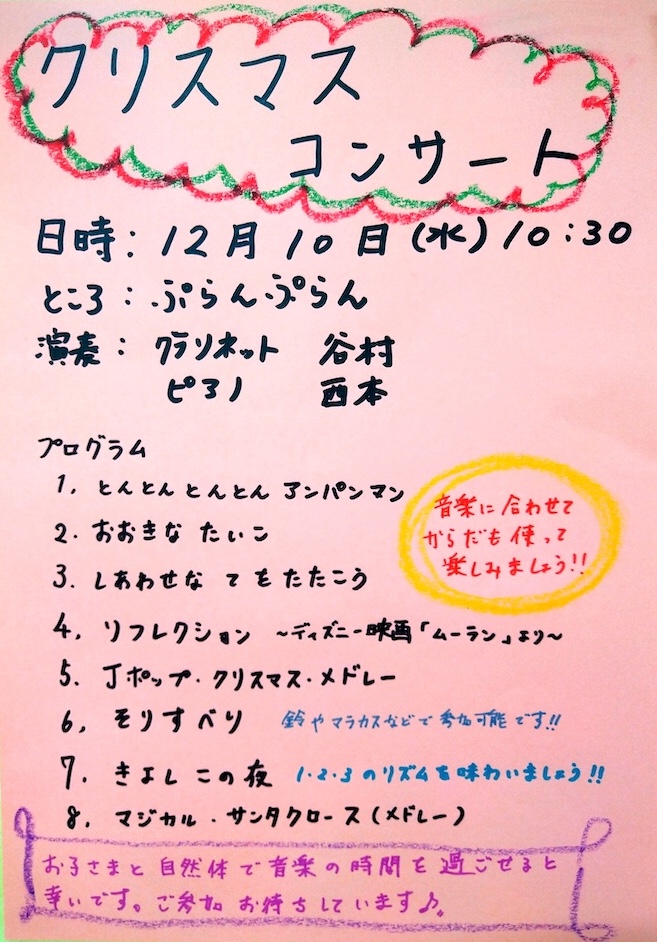 クリスマス
コンサート
日時：12月10日(水)10:30
ところ：ぷらんぷらん
演奏：クラリネット 谷村
ピアノ 西本
プログラム
1. とんとんとんとん アンパンマン
2. おおきな たいこ
3. しあわせな て を たたこう
音楽に合わせて
からだも使って
楽しみましょう!!
4. リフレクション ～ディズニー映画「ムーラン」より～
5. Jポップ・クリスマス・メドレー
6. そりすべり 鈴やマラカスなどで参加可能です!!
7. きよし この夜 1・2・3のリズムを味わいましょう!!
8. マジカル・サンタクロース(メドレー)
お子さまと自然体で音楽の時間を過ごせると
幸いです。ご参加お待ちしています♪。